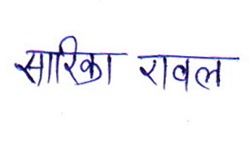 सारिका रावल